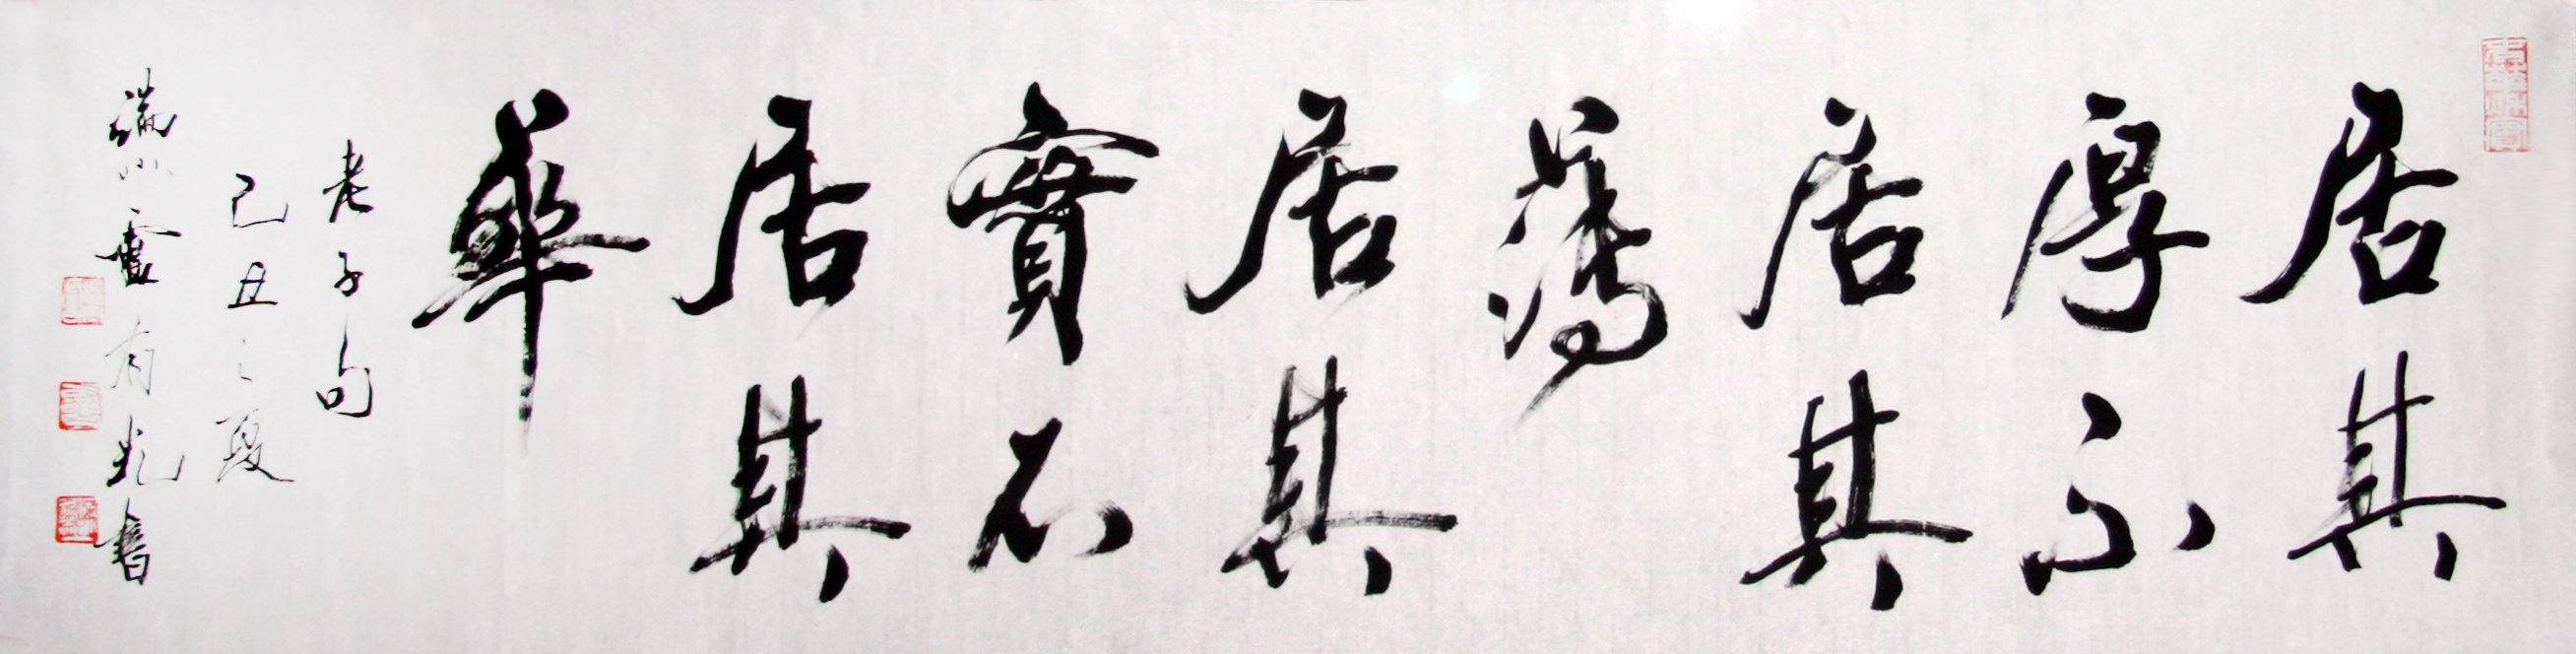 居其
厚不
居其
薄
居其
實不
居其
華
老子句
己丑之夏
書